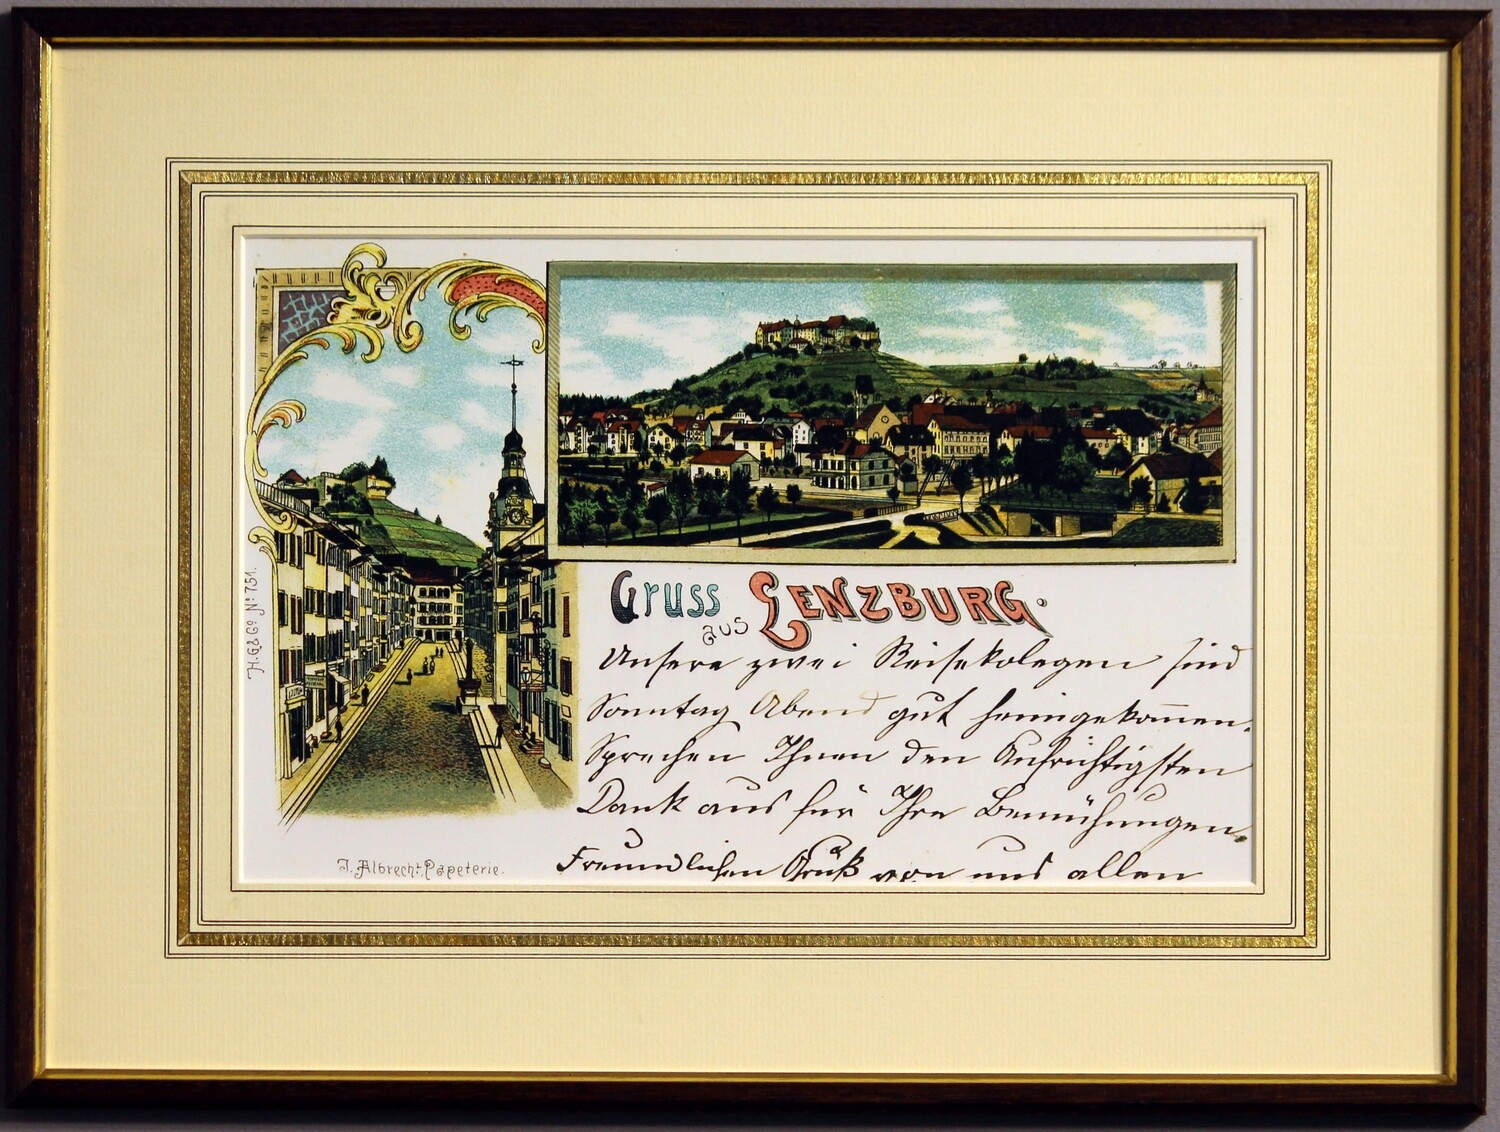 Gruss
aus
LENZBURG.
Unsere zwei Reisekolegen sind
Sonntag Abend gut heimgekommen.
Sprechen Ihnen den Aufrichtigsten
Dank aus für Ihre Bemühungen.
Freundlichen Gruß von uns allen
H. G. & Co. No. 751.
J. Albrecht. Papeterie.